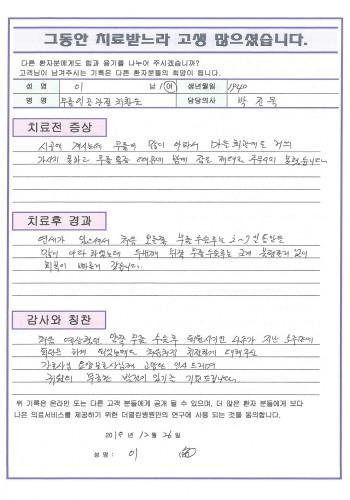 그동안 치료받느라 고생 많으셨습니다.
다른 환자분에게도 힘과 용기를 나누어 주시겠습니까?
고객님이 남겨주시는 기록은 다른 환자분들의 희망이 됩니다.
성 명 이 남 / 여 생년월일 1940
병 명 무릎인공관절치환술 담당의사 박진욱
치료전 증상
시골에 계시는데 무릎이 많이 아파서
가시지 못하고 무릎 통증 때문에 밤에 잠도 제대로 주무시지 못했습니다.
치료후 경과
연세가 있으셔서 처음 오른쪽 무릎 수술후는 2~3일 동안은
많이 아파 하셨는데 두번째 왼쪽 무릎수술후는 크게 없이
회복이 빠르게 같습니다.
감사와 칭찬
처음 예상했던 양쪽 무릎 수술후
친절하게 대해주신
간호사님 요양보호사님께 고맙단 인사 드리며
무궁한 발전이 있기를 기원드립니다.
위 기록은 온라인 또는 다른 고객 분들에게 공개 될 수 있으며, 더 많은 환자 분들에게 보다
나은 의료서비스를 제공하기 위한 더웰린병원만의 연구에 사용 되는 것을 동의합니다.
2019 년 12 월 26 일
성 명 : 이